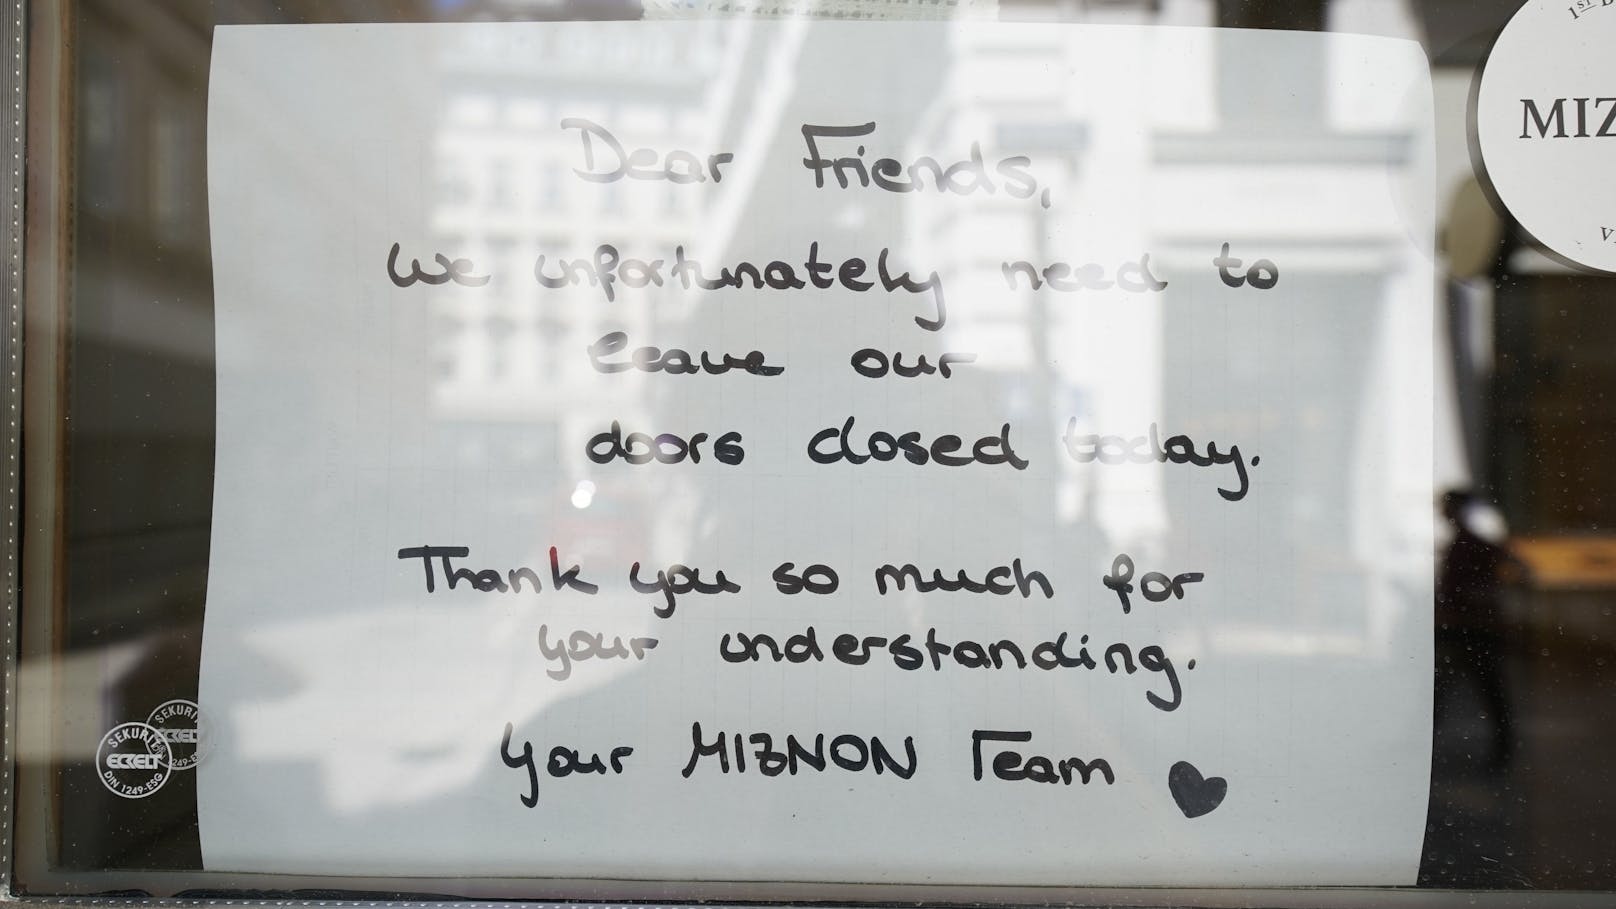 1ST
MIZ
Dear Friends,
we unfortunately need to
leave our
doors closed today.
Thank you so much for
your understanding.
Your MIZNON Team
SEKURIT
ECKELT
DIN 1249-ESG